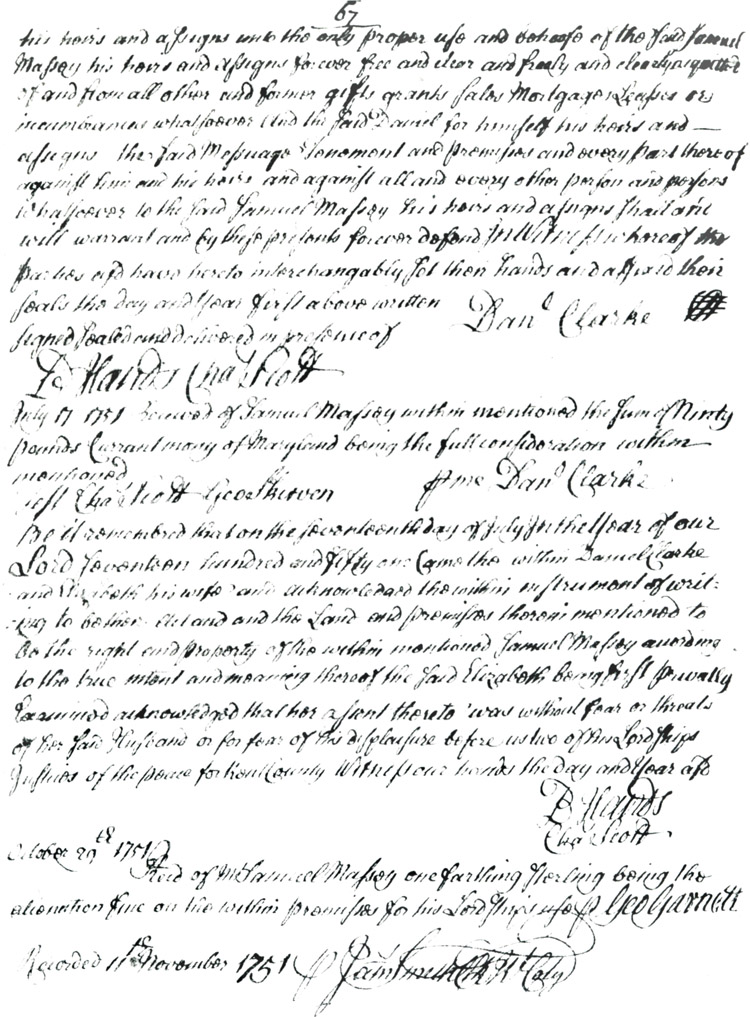 67
his heirs and assigns unto the only proper use and behoofe of the said Samuel
Massey his heirs and assigns forever free and clear and freely and clearly acquitted
of and from all other and former gifts grants Sales Mortgages Leases or
incumbrances whatsoever And the said Daniel for himself his heirs and —
assigns the said Messuage Tenement and premises and every part thereof
against him and his heirs and against all and every other person and persons
whatsoever to the said Samuel Massey his heirs and assigns shall and
will warrant and by these presents forever defend In Witness whereof the
parties afd have hereto interchangably set their hands and affixed their
seals the day and Year first above written Danl Clarke
signed sealed and delivered in presence of
Hands Chas Scott
July 17 1751 Received of Samuel Massey within mentioned the sum of Ninty
pounds Currant mony of Maryland being the full consideration within
mentioned
Test Chas Scott Geo Skirven me Danl Clarke
Be it remembred that on the seventeenth day of July In the Year of our
Lord Seventeen hundred and fifty one Came the within Daniel Clarke
and Elizabeth his wife and acknowledged the within instrument of writ-
ing to be their Act and and the Land and premises therein mentioned to
be the right and property of the within mentioned Samuel Massey according
to the true intent and meaning thereof the said Elizabeth being first privatly
Examined acknowledged that her assent thereto was without fear or threats
of her said Husband or for fear of his displeasure before us two of his Lordships
Justices of the peace for Kent County Witness our hands the day and Year afd
Hands
Chas Scott
October 29th 1751
Recd of Mr Samuel Massey one farthing sterling being the
alienation fine on the within premises for his Lordships use P Geo Garnett
Recorded 11th November 1751 P Jas Smith Clk Kt Coty